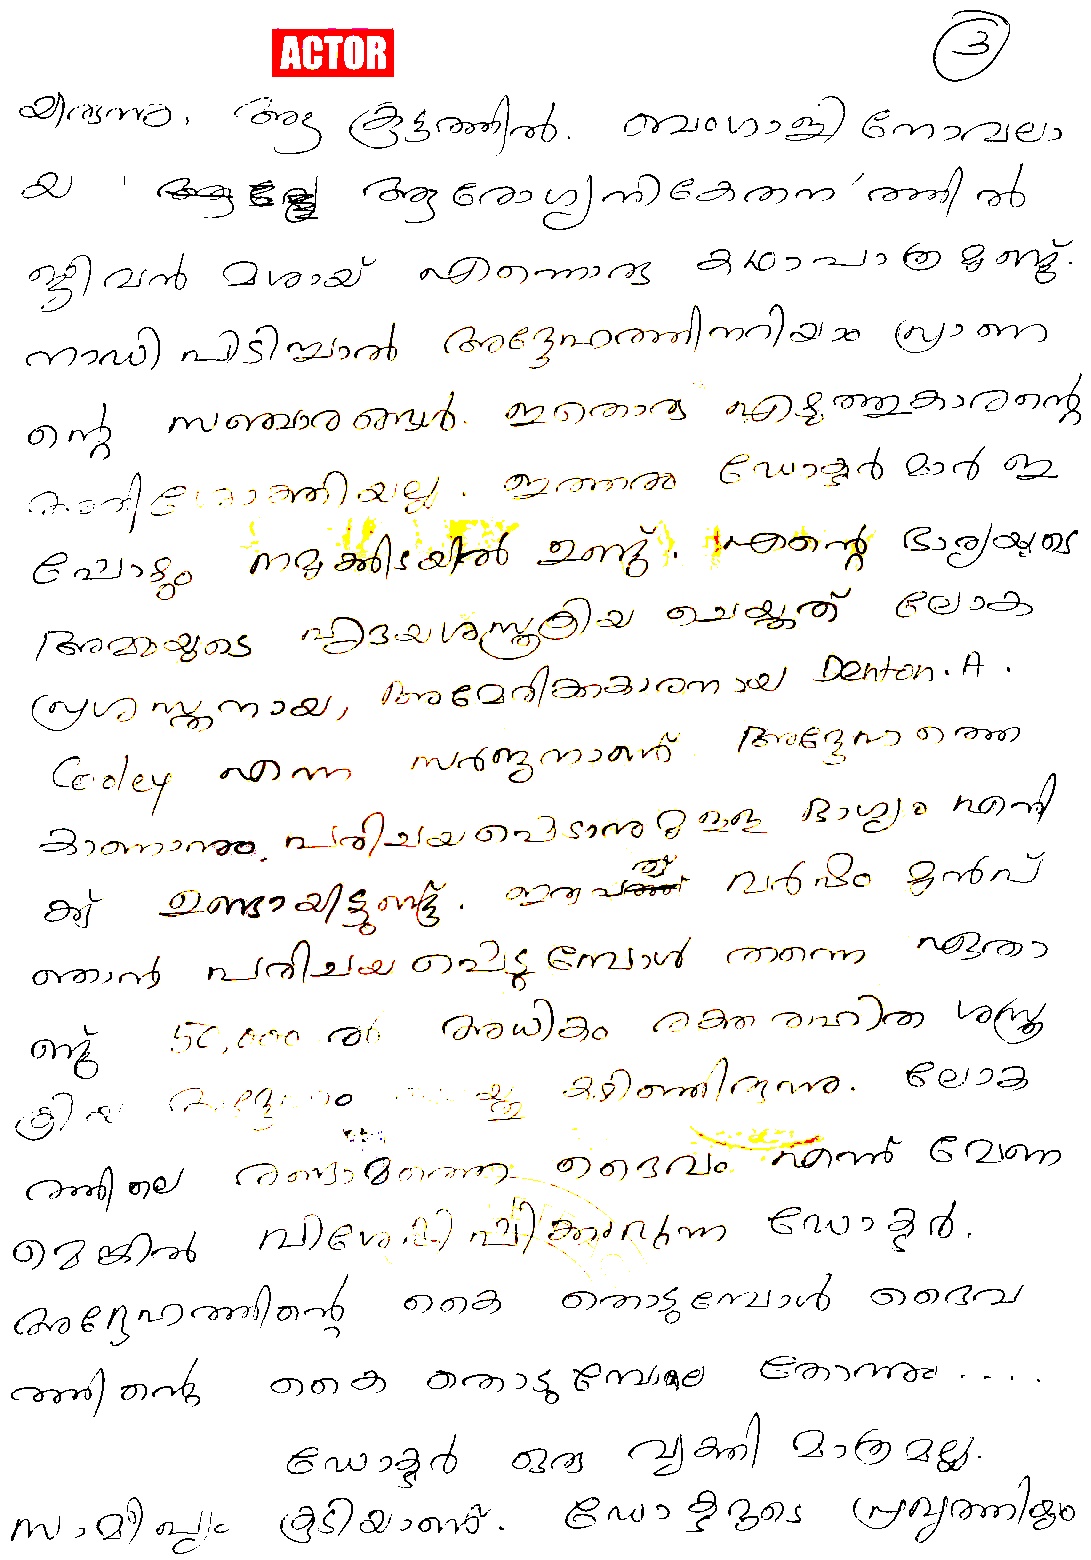 ACTOR
3
യിരുന്നു. ആ കൂട്ടത്തിൽ. ബംഗാളി നോവലാ
യ 'ആരോഗ്യനികേതന'ത്തിൽ
ജീവൻ മശായ് എന്നൊരു കഥാപാത്രമുണ്ട്.
നാഡി പിടിച്ചാൽ അദ്ദേഹത്തിനറിയാം പ്രാണ
ന്റെ സഞ്ചാരങ്ങൾ. ഇതൊരു എഴുത്തുകാരന്റെ
ഇത്തരം ഡോക്ടർമാർ ഇ
പ്പോഴും നമുക്കിടയിൽ ഉണ്ട്. എന്റെ ഭാര്യയുടെ
അമ്മയുടെ ഹൃദയശസ്ത്രക്രിയ ചെയ്തത് ലോക
പ്രശസ്തനായ, അമേരിക്കകാരനായ Denton. A.
Cooley എന്ന സർജനാണ്. അദ്ദേഹത്തെ
കാണാനും, പരിചയപ്പെടാനുമുള്ള ഭാഗ്യം എനി
ക്ക് ഉണ്ടായിട്ടുണ്ട്. ഇരുപത് വർഷം മുൻപ്
ഞാൻ പരിചയപ്പെടുമ്പോൾ തന്നെ ഏതാ
ണ്ട് 50,000 ൽ അധികം രക്തരഹിത ശസ്ത്ര
ക്രിയ അദ്ദേഹം ചെയ്തു കഴിഞ്ഞിരുന്നു. ലോക
ത്തിലെ രണ്ടാമത്തെ ദൈവം എന്ന് വേണ
മെങ്കിൽ വിശേഷിപ്പിക്കാവുന്ന ഡോക്ടർ.
അദ്ദേഹത്തിന്റെ കൈ തൊടുമ്പോൾ ദൈവ
ത്തിന്റെ കൈ തൊട്ടപോലെ തോന്നും....
ഡോക്ടർ ഒരു വ്യക്തി മാത്രമല്ല.
സാമീപ്യം കൂടിയാണ്. ഡോക്ടറുടെ പ്രവൃത്തിയും